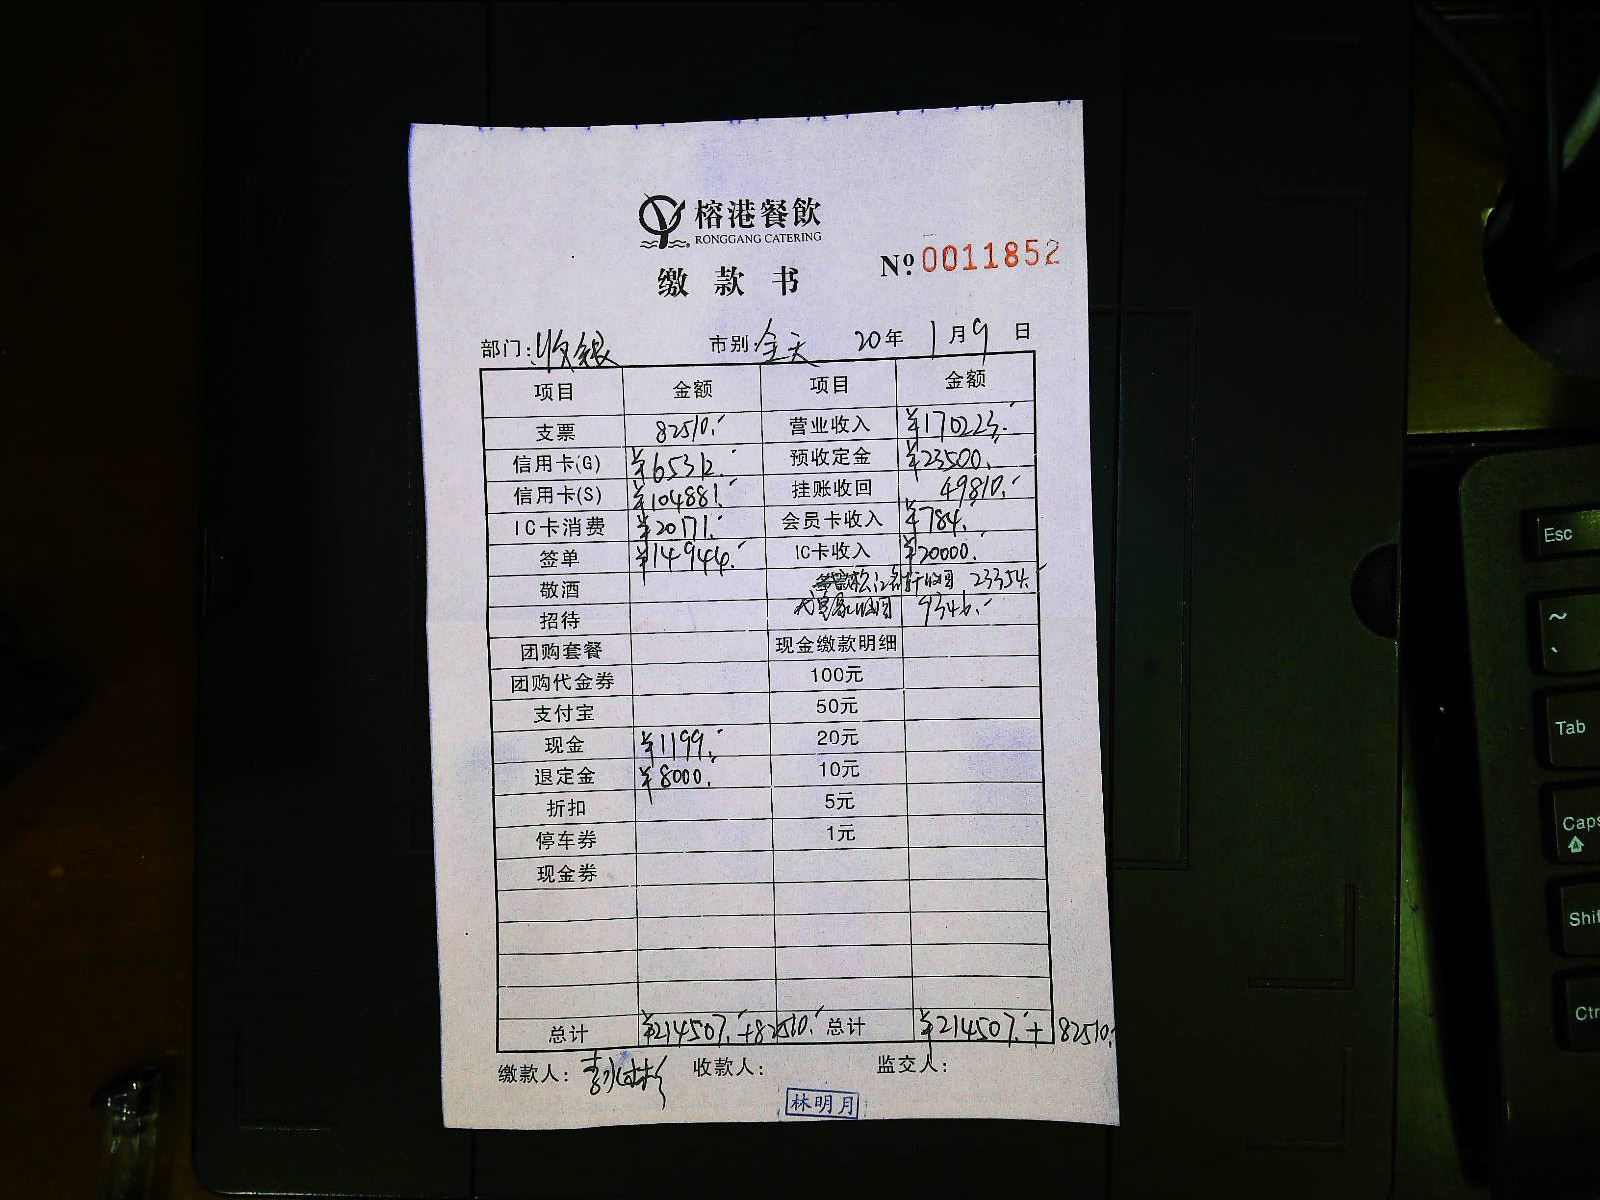 榕港餐飲
RONGGANG CATERING
缴款书 Nº 0011852
部门: 收银 市别: 全天 20年 1月9日
项目 金额 项目 金额
支票 82510.- 营业收入 ¥170223.-
信用卡(G) ¥65312.- 预收定金 ¥23500.-
信用卡(S) ¥104881.- 挂账收回 49810.-
IC卡消费 ¥20171.- 会员卡收入 ¥784.-
签单 ¥14944.- IC卡收入 ¥20000.-
敬酒 收回 23354.-
招待 收回 9346.-
团购套餐 现金缴款明细
团购代金券 100元
支付宝 50元
现金 ¥1199.- 20元
退定金 ¥8000.- 10元
折扣 5元
停车券 1元
现金券
总计 ¥214507.-+82510.- 总计 ¥214507.-+82510.-
缴款人: 收款人: 监交人:
林明月
Esc
~
`
Tab
Caps
Shif
Ctr